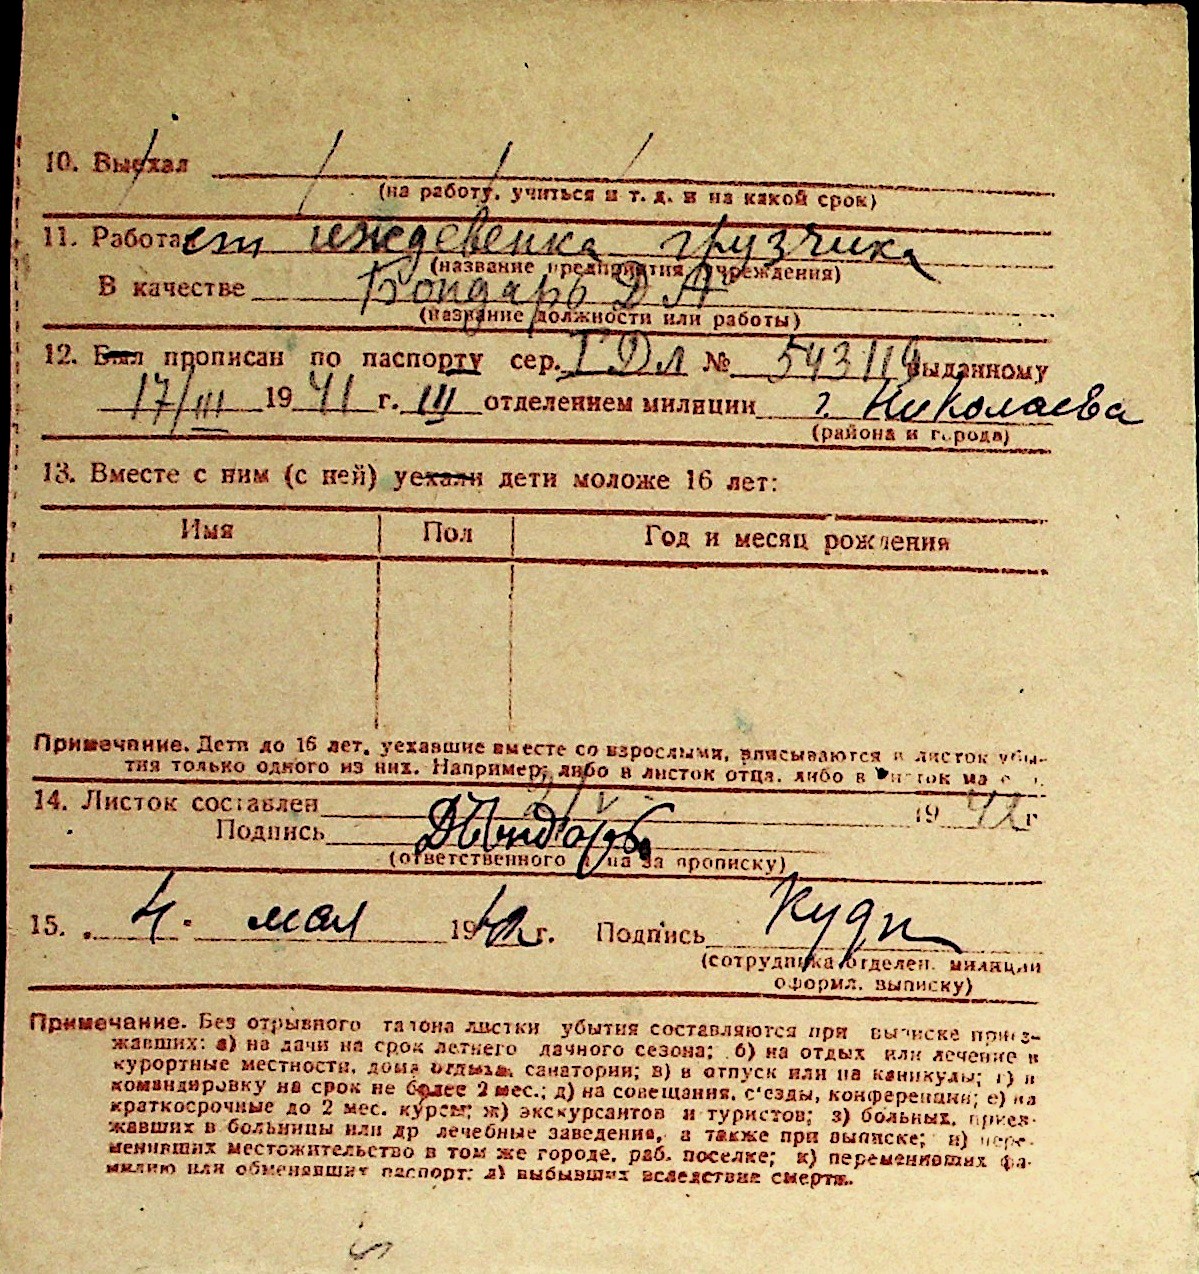 10. Выехал
(на работу, учиться и т. д. и на какой срок)
11. Работает иждевенка грузчика
(название предприятия, учреждения)
В качестве Бондарь Д А
(название должности или работы)
12. Был прописан по паспорту сер. I ДЛ № 543114 выданному
17/III 1941 г. III отделением милиции г. Николаева
(района и города)
13. Вместе с ним (с ней) уехали дети моложе 16 лет:
Имя Пол Год и месяц рождения
Примечание. Дети до 16 лет, уехавшие вместе со взрослыми, вписываются в листок убы-
тия только одного из них. Например: либо в листок отца, либо в листок ма
14. Листок составлен 1942 г
Подпись ДБондарь
(ответственного лица за прописку)
15. „4" мая 1942 г. Подпись
(сотрудника отделен. милиции
оформл. выписку)
Примечание. Без отрывного талона листки убытия составляются при выписке приез-
жавших: а) на дачи на срок летнего дачного сезона; б) на отдых или лечение в
курортные местности, дома отдыха, санатории; в) в отпуск или на каникулы; г) в
командировку на срок не более 2 мес.; д) на совещания, с'езды, конференции; е) на
краткосрочные до 2 мес. курсы; ж) экскурсантов и туристов; з) больных, приез-
жавших в больницы или др лечебные заведения, а также при выписке; и) пере-
менивших местожительство в том же городе, раб. поселке; к) переменивших фа-
милию или обменявших паспорт; л) выбывших вследствие смерти.